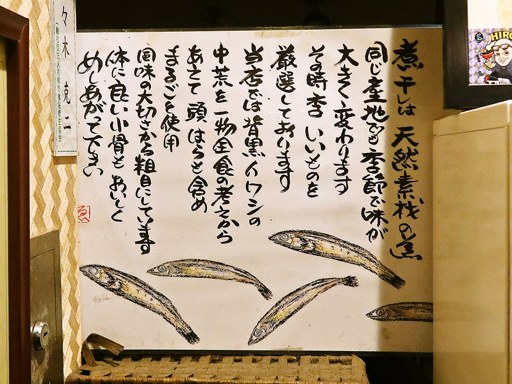 煮干しは天然素材の為
同じ産地でも季節で味が
大きく変わります
その時季いいものを
厳選しております
当店では背黒イワシの
中荒を一物全食の考えから
あえて頭はらも含め
まるごと使用
風味の大切さから粗目にしています
体に良い小骨もおいしく
めしあがって下さい
々木 克二
HIRO